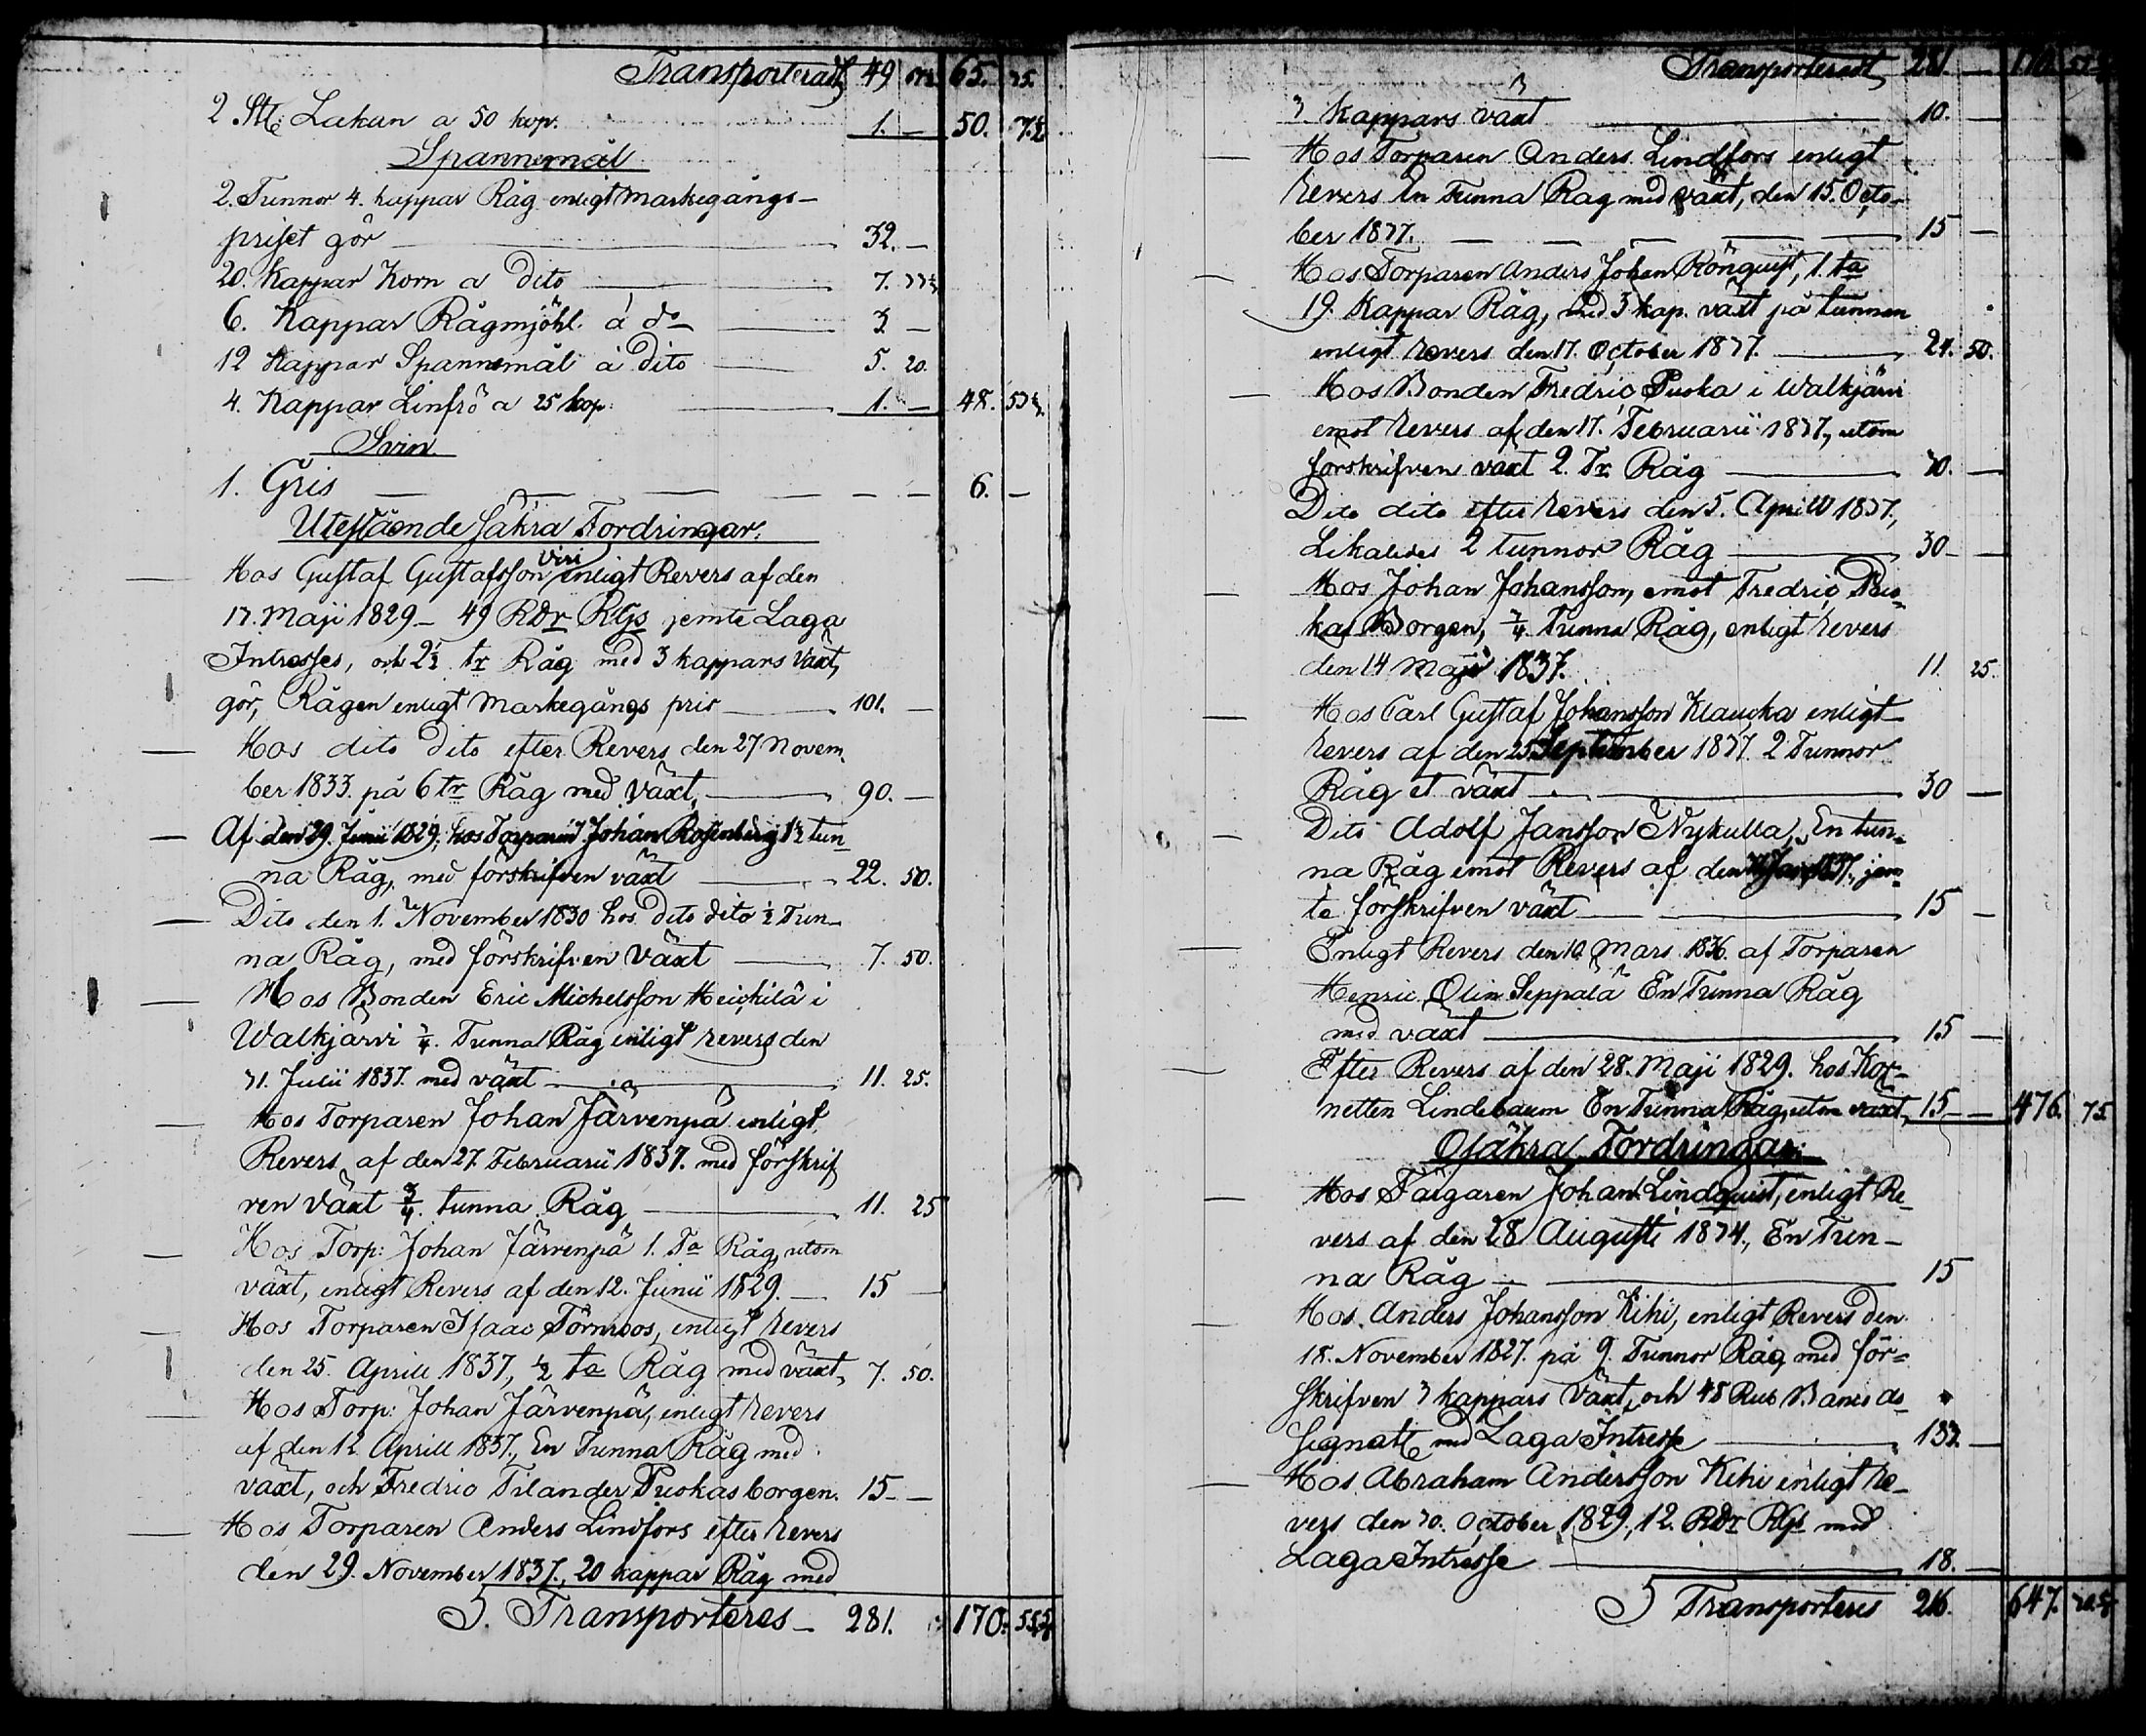 Transporteradt 49 65. 25.
2. St: Lakan a 50 kop. 1. — 50. 7½
Spannemål
2. Tunnor 4. kappar Råg enligt markegångs-
priset gör 32. —
20. Kappar Korn a dito 7. 33½
6. Kappar Rågmjöhl á do 3 —
12 Kappar Spannemål á dito 5. 20.
4. Kappar Linfrö a 25 kop. 1. — 48. 53½
Svin
1. Gris — — — — — 6. —
Utestående säkra Fordringar.
Hos Gustaf Gustafsson Viri enligt Revers af den
17. Maji 1829 — 49 Rdr Rgs jemte Laga
Intresses, och 2½ tr Råg med 3 kappars växt,
gör, Rågen enligt markegångs pris 101. —
Hos dito dito efter Revers den 27 Novem-
ber 1833. på 6 tr Råg med växt, 90. —
Af den 29. Junii 1829, hos Torparen Johan Rosenberg 1½ tun-
na Råg, med förskrifven växt 22. 50.
Dito den 1. November 1830 hos dito dito ½ Tun-
na Råg, med förskrifven växt 7. 50.
Hos Bonden Eric Michelsson Heickilä i
Walkjärvi ¾. Tunna Råg enligt revers den
31. Julii 1837. med växt 11. 25.
Hos Torparen Johan Järvenpä enligt
Revers af den 27. Februarii 1837. med förskrif
ven växt ¾. tunna Råg 11. 25
Hos Torp: Johan Järvenpä 1. Ta Råg, utom
växt, enligt Revers af den 12. Junii 1829. — 15 —
Hos Torparen Isaac Törnroos, enligt revers
den 25. Aprill 1837, ½ ta Råg med växt, 7. 50.
Hos Torp: Johan Järvenpä, enligt revers
af den 12 Aprill 1837., En Tunna Råg med
växt, och Fredric Tilander Puokas borgen. 15 —
Hos Torparen Anders Lindfors efter revers
den 29. November 1837., 20 kappar Råg med
Transporteres — 281. 170. 55⅚
Transporteradt 281. — 170.
3. Kappars växt 10. —
Hos Torparen Anders Lindfors enligt
revers En Tunna Råg med växt, den 15. Octo-
ber 1837. — — — — 15 —
Hos Torparen Anders Johan Rönquist, 1. ta
19. Kappar Råg, med 3 kap. växt på tunnan
enligt revers den 17. October 1837. 24. 50.
Hos Bonden Fredric Puoka i Walkjärvi
emot revers af den 17. Februarii 1837, utom
förskrifven växt 2. Tr Råg 30. —
Dito dito efter revers den 5. Aprill 1837,
Likaledes 2 tunnor Råg 30 — —
Hos Johan Johansson, emot Fredric Puo-
kas Borgen, ¾. Tunna Råg, enligt revers
den 14 Maji 1837. 11. 25.
Hos Carl Gustaf Johansson Klaucka enligt
revers af den 25. September 1837. 2 Tunnor
Råg et växt 30 —
Dito Adolf Jansson Nykulla, En tun-
na Råg emot Revers af den 1837., jem-
te förskrifven växt 15 —
Enligt Revers den 10. Mars 1836. af Torparen
Henric Olin Seppälä En Tunna Råg
med växt 15 —
Efter Revers af den 28. Maji 1829. hos Kor-
netten Lindebaum En Tunna Råg, utom växt, 15 — 476. 75.
Osäkra Fordringar:
Hos Färgaren Johan Lindquist, enligt Re-
vers af den 28 Augusti 1834., En Tun-
na Råg — 15
Hos Anders Johansson Kihi, enligt Revers den
18. November 1827. på 9. Tunnor Råg med för=
skrifven 3 kappars växt, och 48 Rub Banco as-
signatt med Laga Intresse —
Hos Abraham Andersson Kihi enligt re-
vers den 30. October 1829., 12. Rdr Rgs med
Laga Intresse 18. —
Transporteres 216. 647.